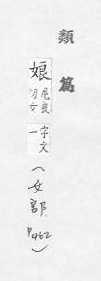 類篇
娘
尼良
切女
字文
一
（女部 P462）